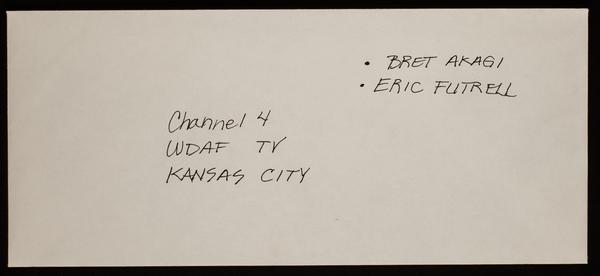 • BRET AKAGI
• ERIC FUTRELL
Channel 4
WDAF TV
KANSAS CITY